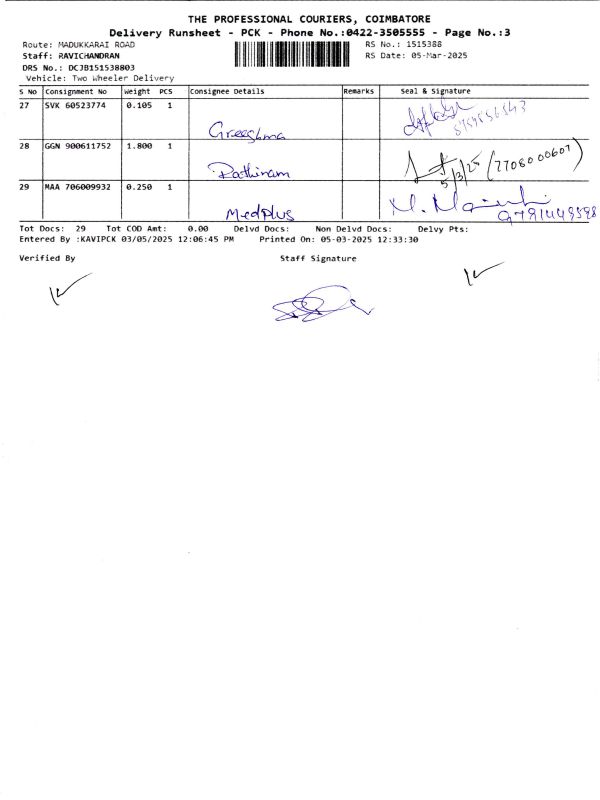 THE PROFESSIONAL COURIERS, COIMBATORE
Delivery Runsheet - PCK - Phone No.:0422-3505555 - Page No.:3
Route: MADUKKARAI ROAD RS No.: 1515388
Staff: RAVICHANDRAN RS Date: 05-Mar-2025
DRS No.: DCJB151538803
Vehicle: Two Wheeler Delivery
S No Consignment No Weight PCS Consignee Details Remarks Seal & Signature
27 SVK 60523774 0.105 1
Greeshma
28 GGN 900611752 1.800 1
Rathinam 5/3/25 (7708000607)
29 MAA 706009932 0.250 1
Medplus 9791449598
Tot Docs: 29 Tot COD Amt: 0.00 Delvd Docs: Non Delvd Docs: Delvy Pts:
Entered By :KAVIPCK 03/05/2025 12:06:45 PM Printed On: 05-03-2025 12:33:30
Verified By Staff Signature